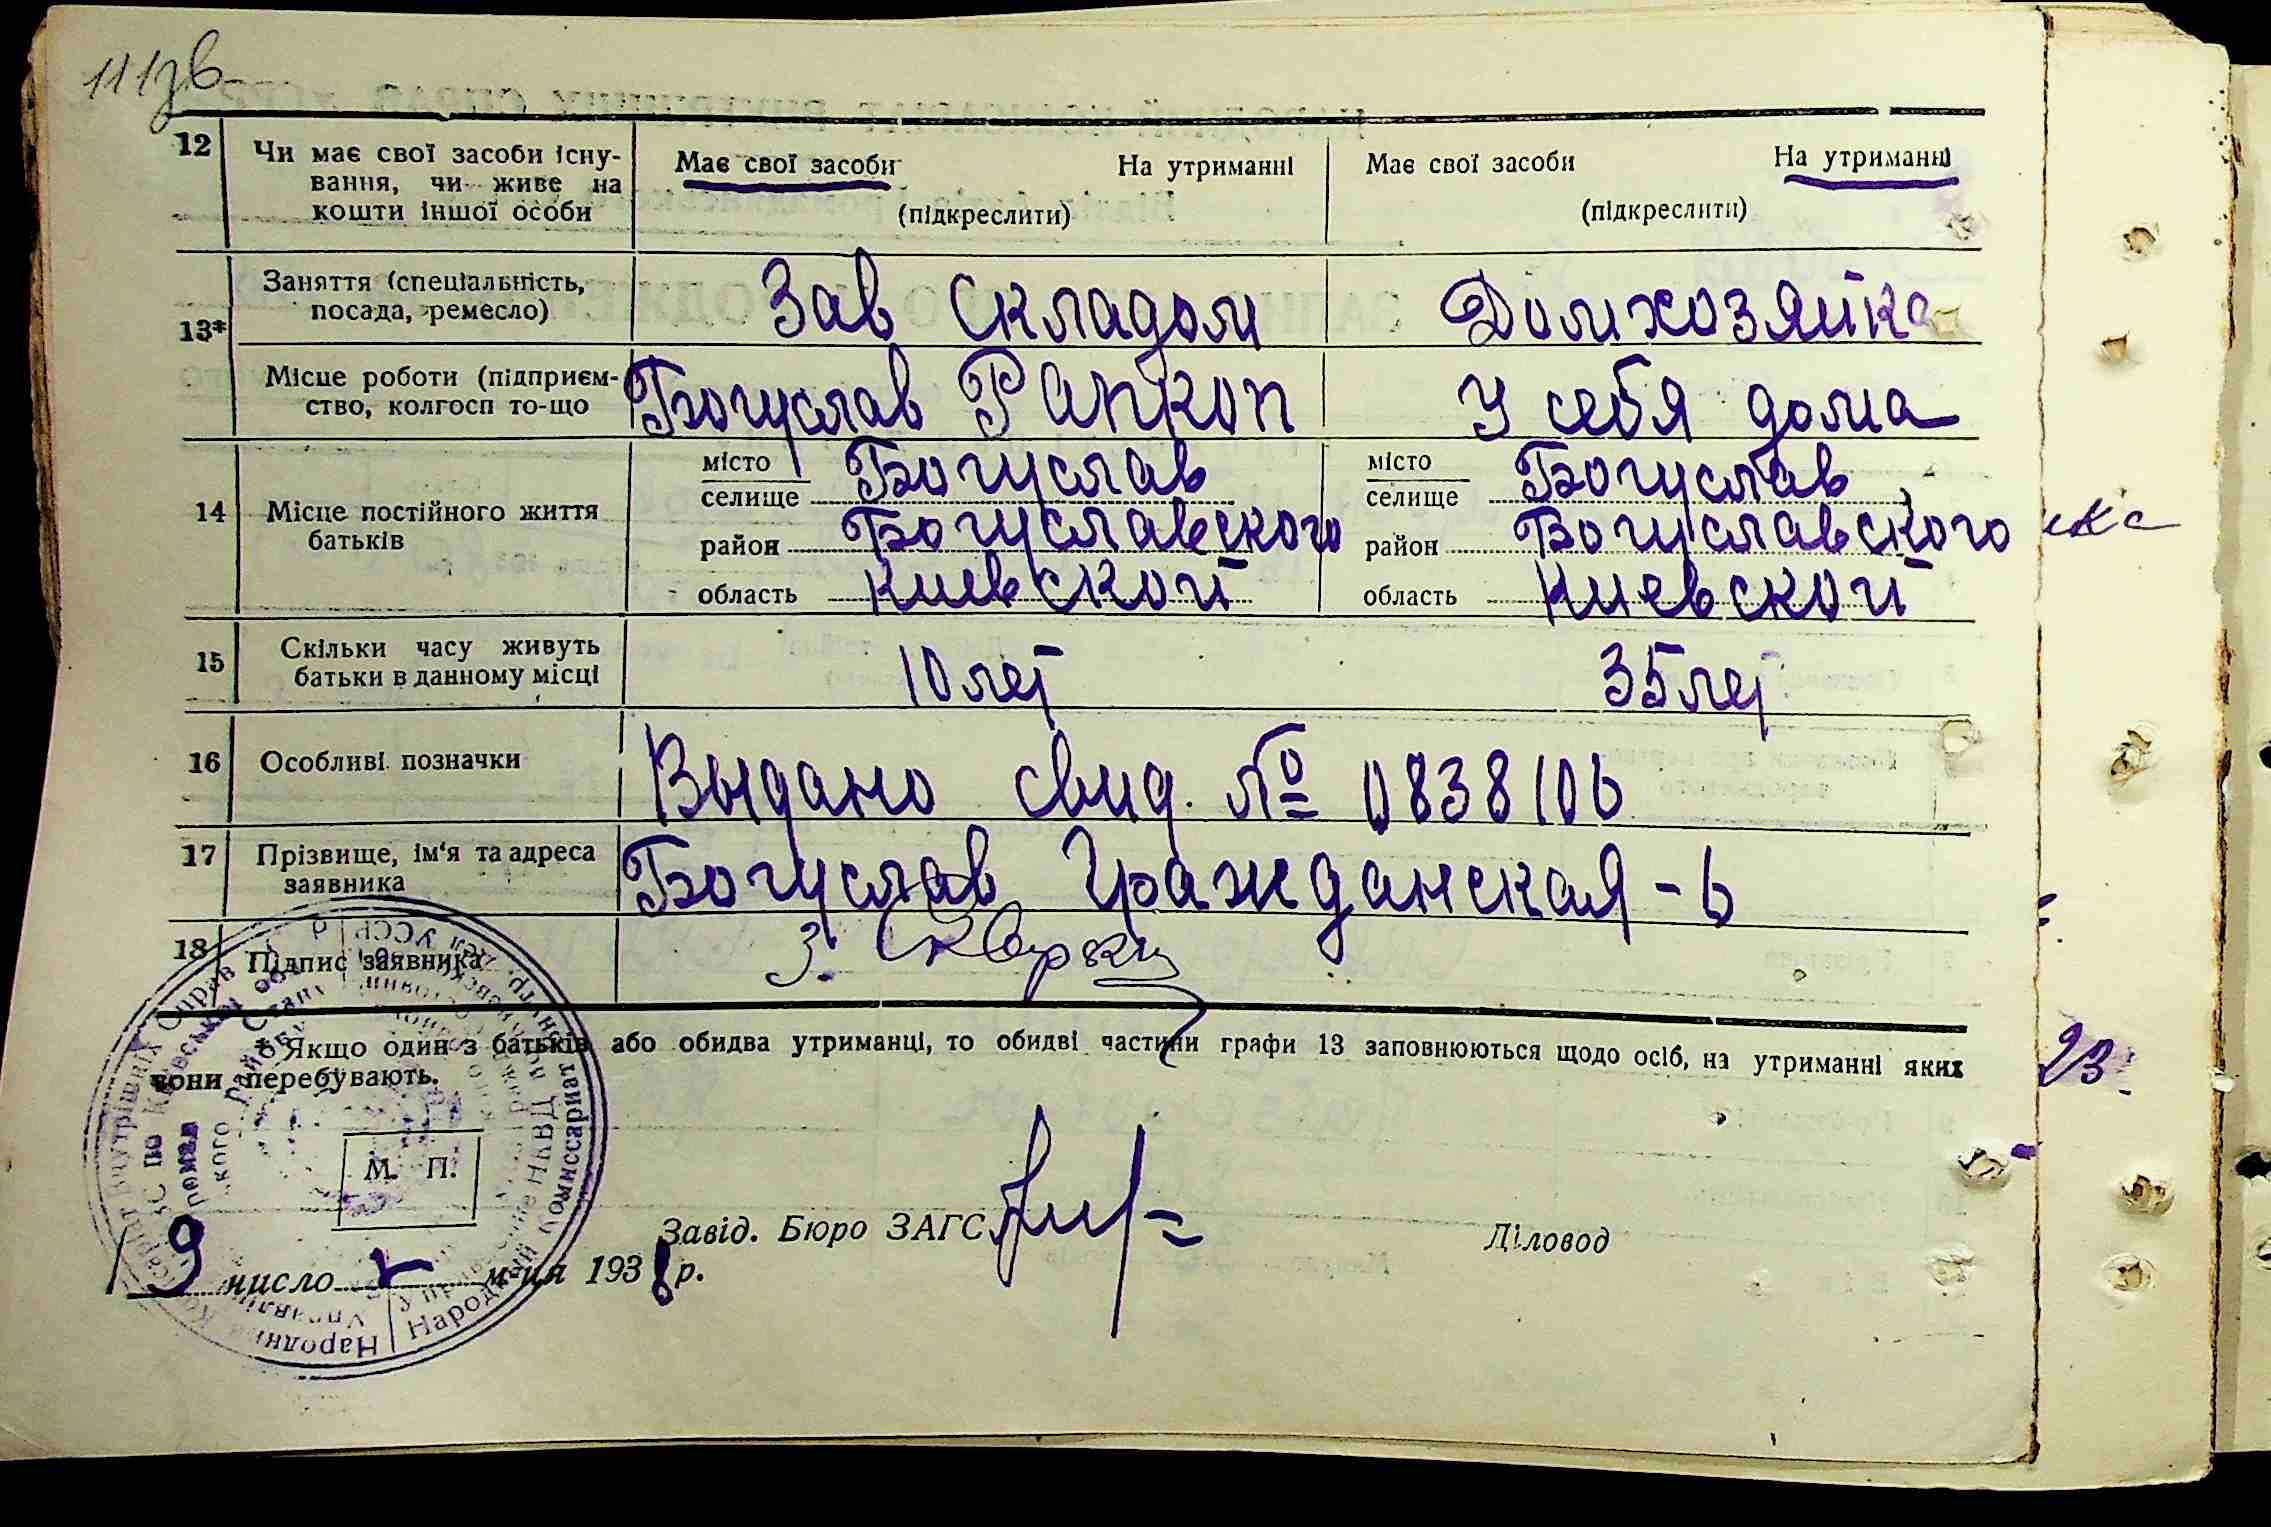 111зв
12 Чи має свої засоби існу- Має свої засоби На утриманні Має свої засоби На утриманні
вання, чи живе на
кошти іншої особи (підкреслити) (підкреслити)
13* Заняття (спеціальність, Зав складом Домхозяйка
посада, ремесло)
Місце роботи (підприєм- Богуслав Рапкоп У себя дома
ство, колгосп то-що
14 Місце постійного життя місто Богуслав місто Богуслав
батьків селище селище
район Богуславского район Богуславского
область Киевской область Киевской
15 Скільки часу живуть 10 лет 35 лет
батьки в данному місці
16 Особливі позначки Выдано свид. № 0838106
17 Прізвище, ім'я та адреса Богуслав Гражданская - 6
заявника
18 Підпис заявника З.
* Якщо один з батьків або обидва утриманці, то обидві частини графи 13 заповнюються щодо осіб, на утриманні яких
вони перебувають.
23
М. П.
Завід. Бюро ЗАГС Діловод
19 число м-ця 1938 р.